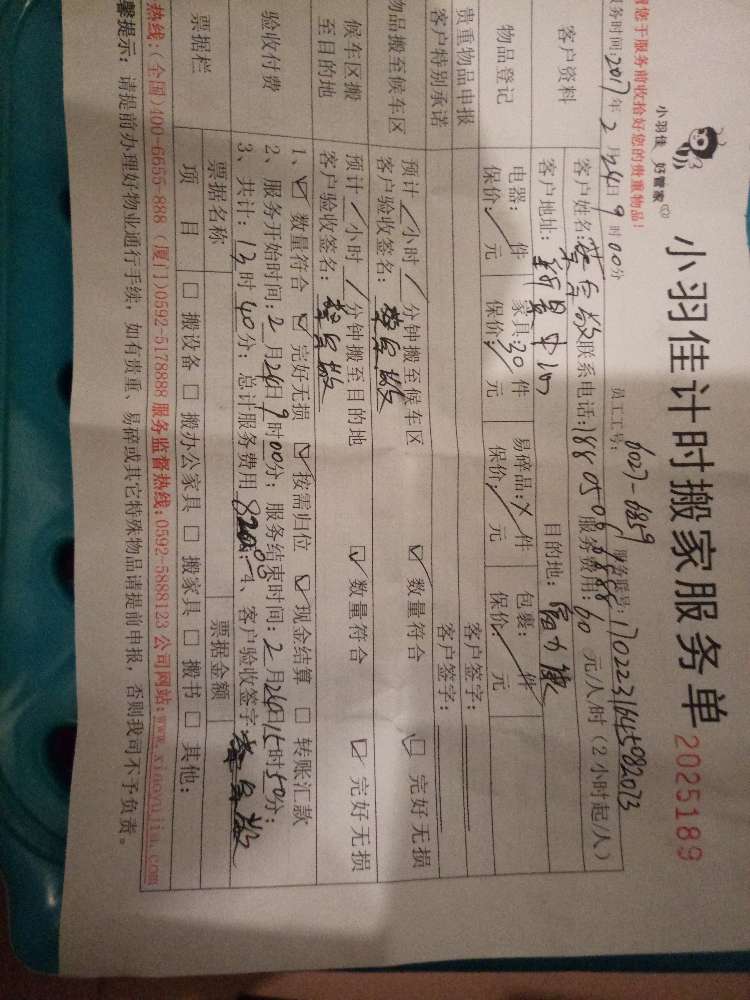 小羽佳 好管家
小羽佳计时搬家服务单
2025189
您于服务前收拾好您的贵重物品!
员工工号: 6027-6859
服务时间: 2017年2月24日9时00分
客户资料
客户姓名:
联系电话:
服务费用: 60 元/人/时 (2小时起/人)
客户地址:
目的地:
物品登记
电器: 件 家具: 30 件 易碎品: 件 包裹: 件
保价: 元 保价: 元 保价: 元 保价: 元
贵重物品申报
客户签字:
客户特别承诺
客户签字:
物品搬至候车区
预计 小时 分钟搬至候车区 ☑ 数量符合 ☑ 完好无损
客户验收签名:
候车区搬至目的地
预计 小时 分钟搬至目的地 ☑ 数量符合 ☑ 完好无损
客户验收签名:
验收付费
1、☑ 数量符合 ☑ 完好无损 ☑ 按需归位 ☑ 现金结算 □ 转账汇款
2、服务开始时间: 2月24日9时00分; 服务结束时间: 2月24日15时50分;
3、共计: 13时40分; 总计服务费用 820 4、客户验收签字
票据栏
票据名称 票据金额
项目 □ 搬设备 □ 搬办公家具 □ 搬家具 □ 搬书 □ 其他:
热线:(全国)400-6655-888 (厦门)0592-5178888 服务监督热线:0592-5888123 公司网站:www.xiaoyujia.com
馨提示: 请提前办理好物业通行手续, 如有贵重、易碎或其它特殊物品请提前申报, 否则我司不予负责。